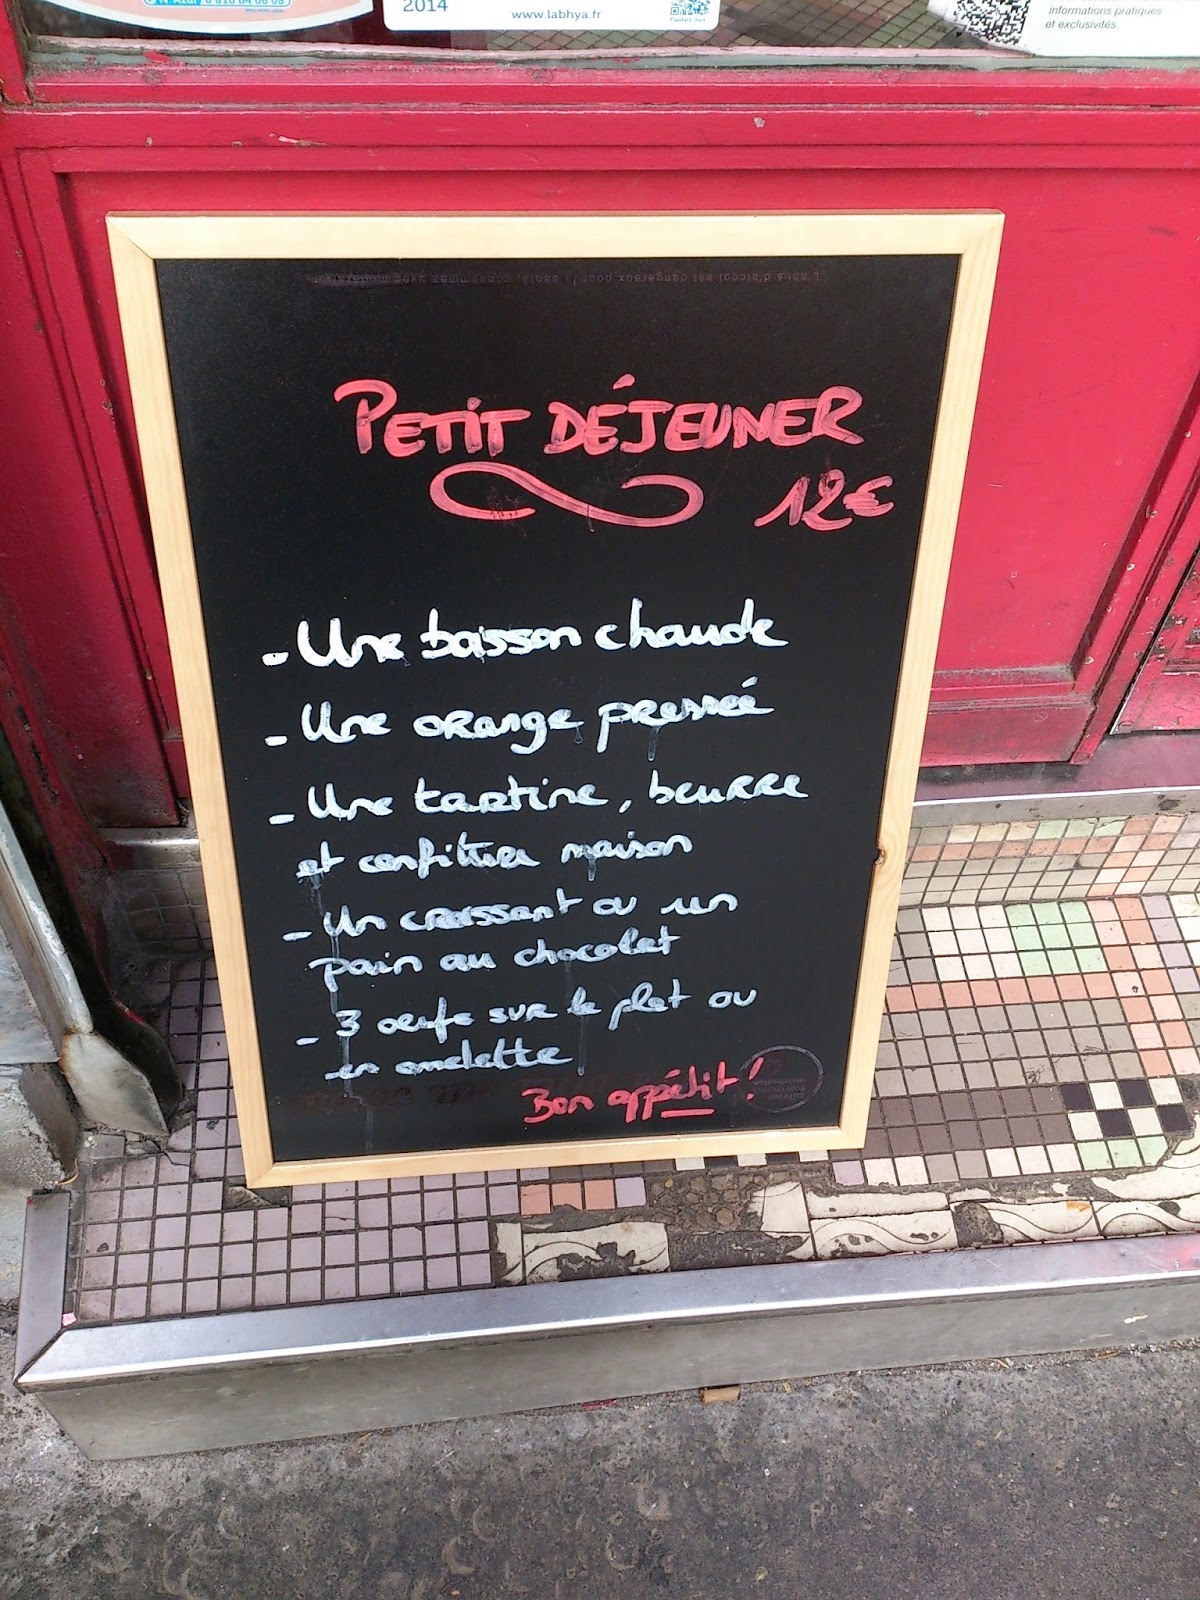 N° Azur 0 810 84 68 68
2014
www.labhya.fr
Flashez-moi
informations pratiques
et exclusivités.
L'abus d'alcool est dangereux pour la santé, consommez avec modération
PETIT DÉJEUNER
12€
- Une boisson chaude
- Une orange pressée
- Une tartine, beurre
et confiture maison
- Un croissant ou un
pain au chocolat
- 3 oeufs sur le plat ou
en omelette
Bon appétit !